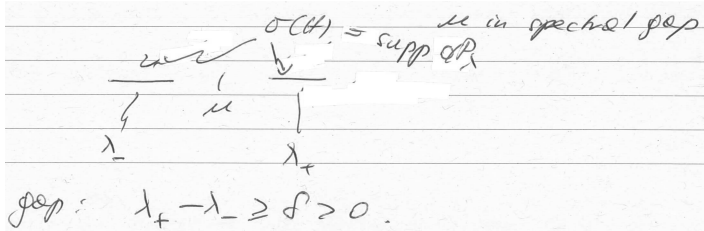 σ(H) = supp dP_λ
μ in spectral gap
μ
λ_- λ_+
gap: λ_+ - λ_- ≥ δ > 0.